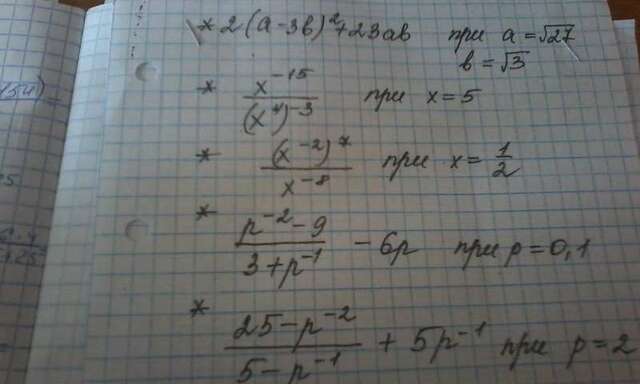 * 2(a-3в)²+23ав при a=√27
в=√3
* x⁻¹⁵/(x⁴)⁻³ при x=5
* (x⁻²)⁷/x⁻⁸ при x=1/2
* p⁻²-9/3+p⁻¹ -6p при p=0,1
* 25-p⁻²/5-p⁻¹ + 5p⁻¹ при p=2